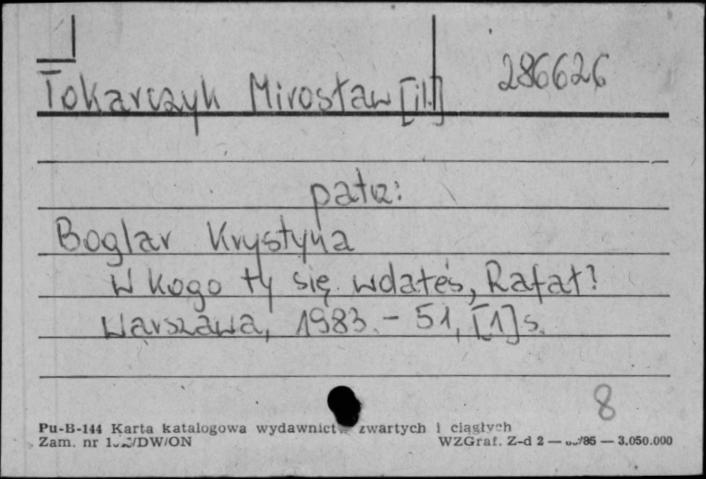 Tokarczyk Mirosław [il.] 286626
patrz:
Boglar Krystyna
W kogo ty się wdałeś, Rafał?
Warszawa, 1983. - 51, [1] s.
8
Pu-B-144 Karta katalogowa wydawnictw zwartych i ciągłych
Zam. nr /DW/ON WZGraf. Z-d 2 — /86 — 3.050.000